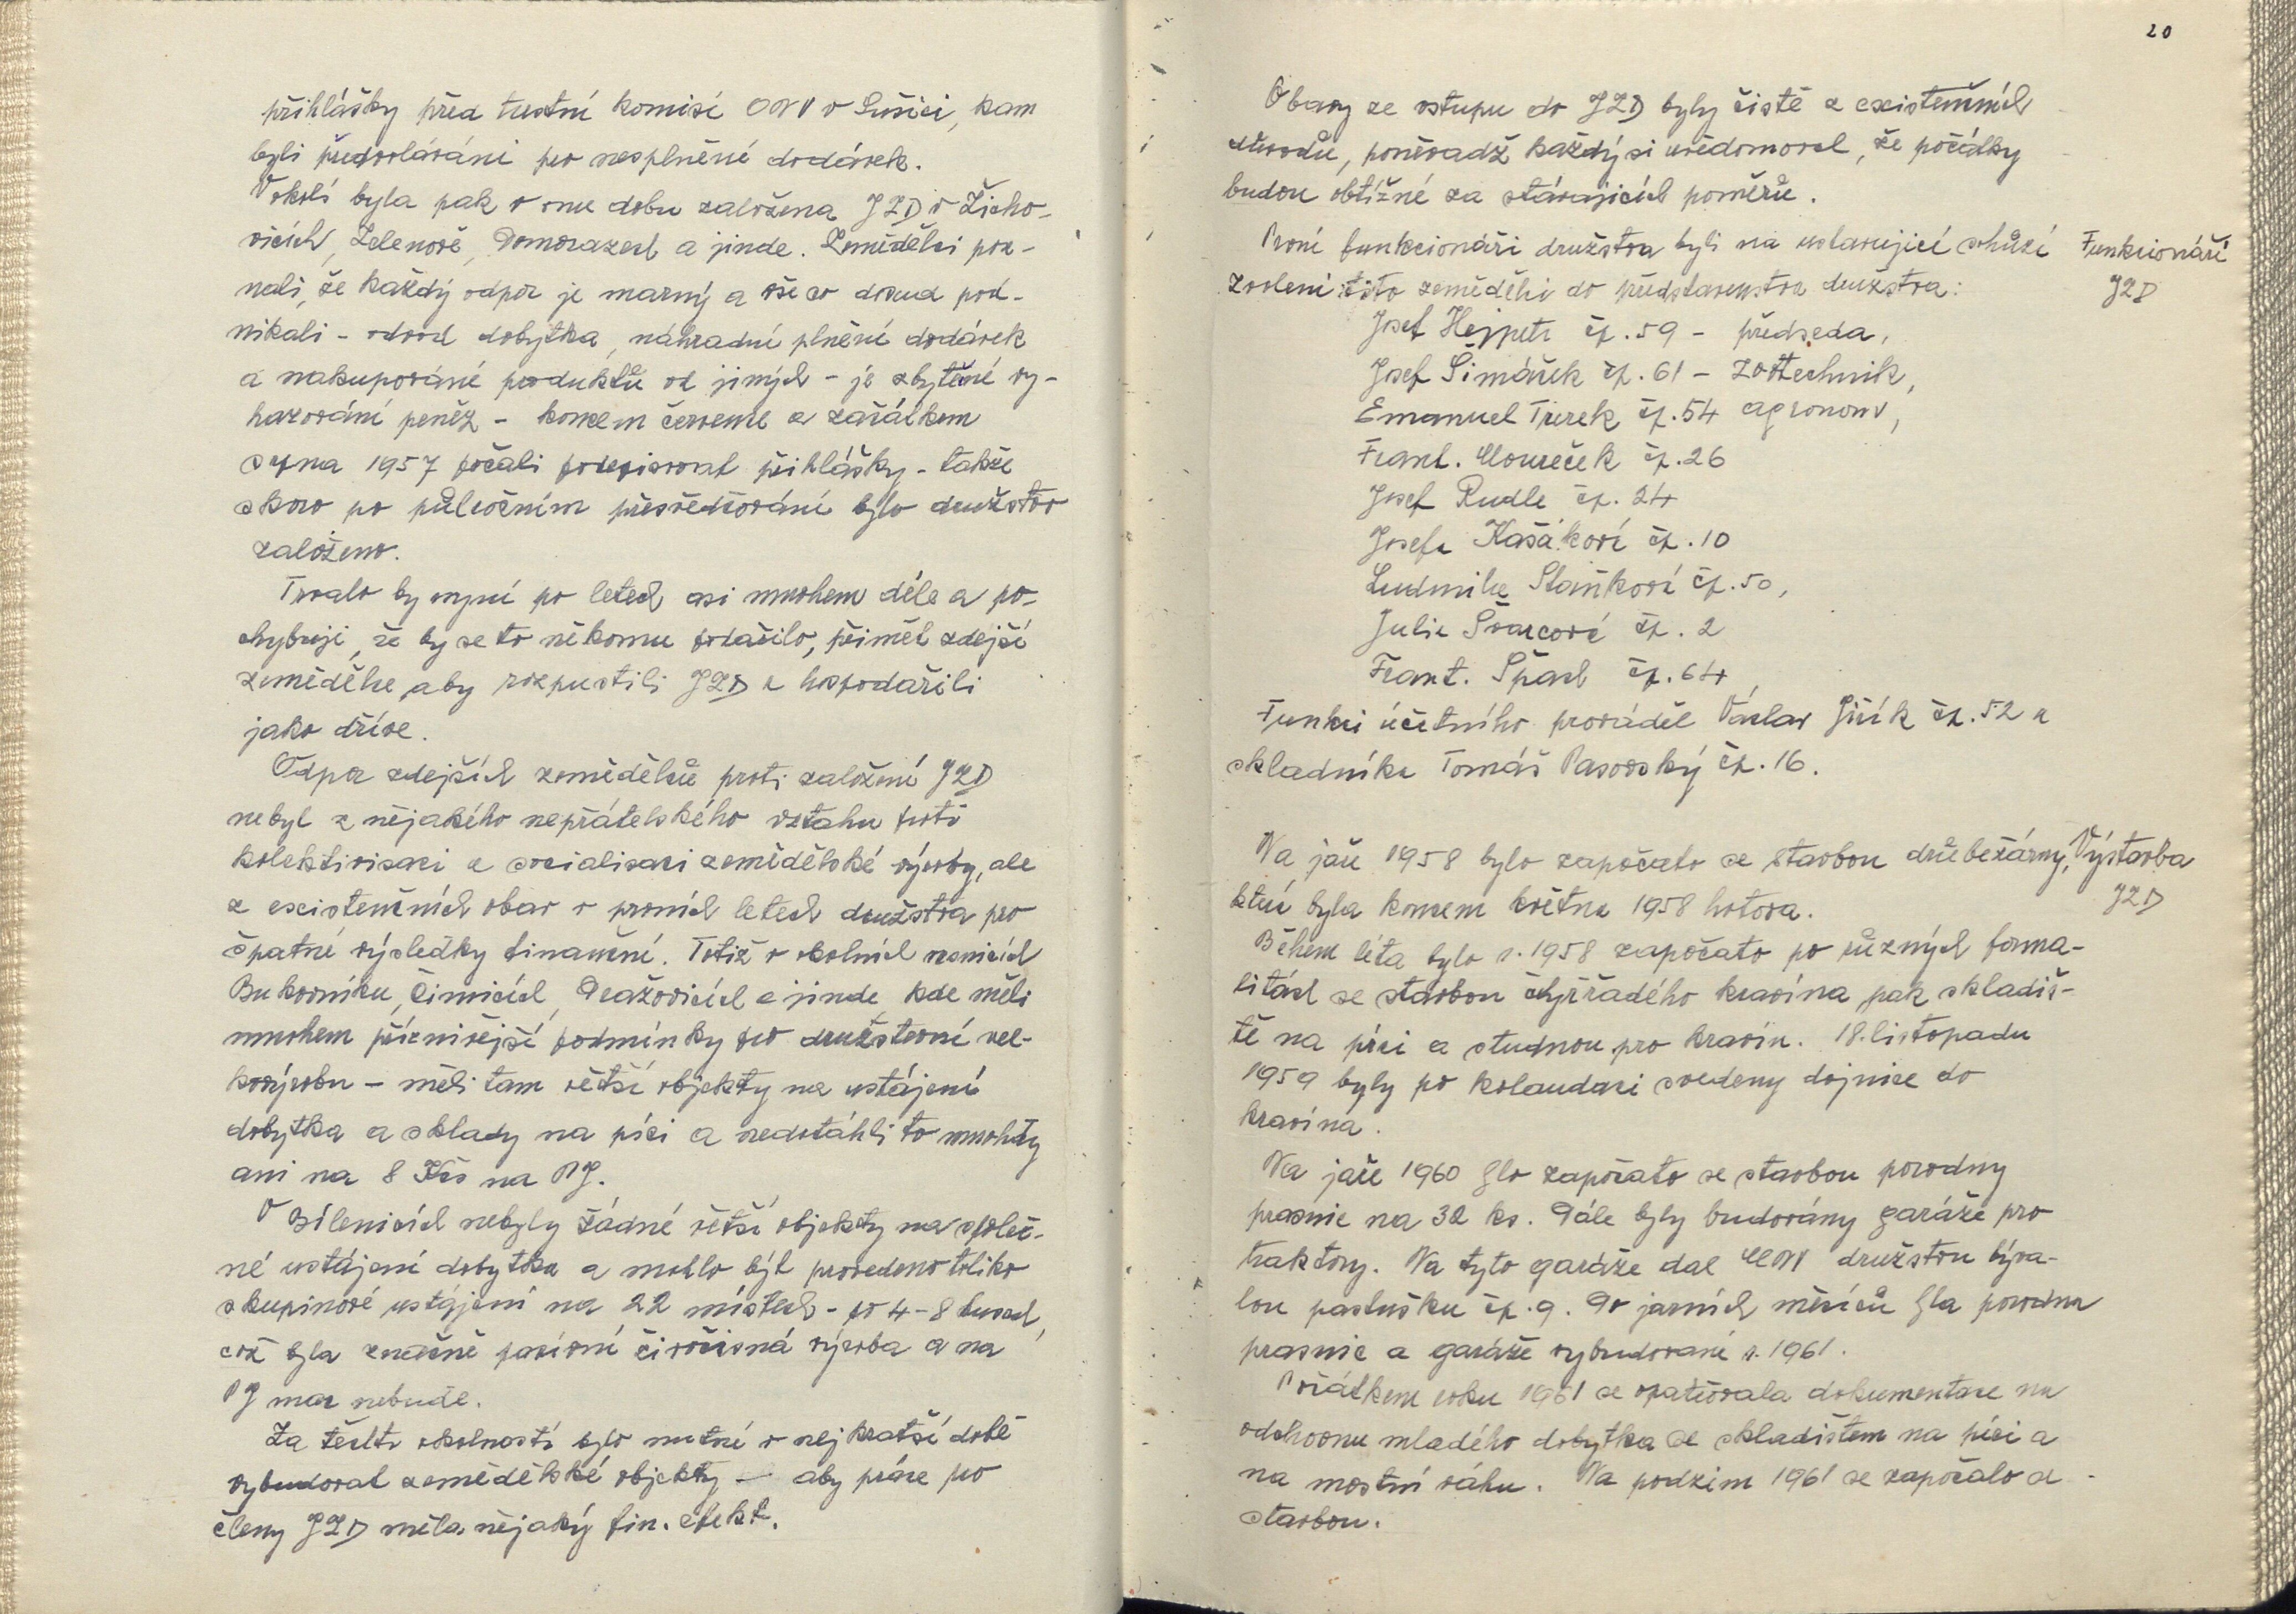 přihlášky před trestní komisí ONV v Sušici, kam
byli předvoláváni pro nesplnění dodávek.
V okolí byla pak v onu dobu založena JZD v Žicho-
vicích, Zelenově, Domorazech a jinde. Zemědělci poz-
nali, že každý odpor je marný a vše co dosud pod-
nikali - odvod dobytka, náhradní plnění dodávek
a nakupování produktů od jiných - je zbytečné vy-
hazování peněz - koncem července a začátkem
srpna 1957 počali podepisovat přihlášky - takže
skoro po půlročním přesvědčování bylo družstvo
založeno.
Trvalo by nyní po letech asi mnohem déle a po-
chybuji, že by se to někomu podařilo, přimět zdejší
zemědělce, aby rozpustili JZD a hospodařili
jako dříve.
Odpor zdejších zemědělců proti založení JZD
nebyl z nějakého nepřátelského vztahu proti
kolektivisaci a socialisaci zemědělské výroby, ale
z existenčních obav v prvních letech družstva pro
špatné výsledky finanční. Totiž v okolních vesnicích
Bukovníku, Čimicích, Dražovicích a jinde, kde měli
mnohem příznivější podmínky pro družstevní vel-
kovýrobu - měli tam větší objekty na ustájení
dobytka a sklady na píci a nedotáhli to mnohdy
ani na 8 Kčs na PJ.
V Bílenicích nebyly žádné větší objekty na společ-
né ustájení dobytka a mohlo být provedeno toliko
skupinové ustájení na 22 místech - po 4-8 kusech,
což byla značně pasivní živočisná výroba a na
PJ moc nebude.
Za těchto okolností bylo nutné v nejkratší době
vybudovat zemědělské objekty — aby práce pro
členy JZD měla nějaký fin. efekt.
20
Obavy ze vstupu do JZD byly čistě z existenčních
důvodů, poněvadž každý si uvědomoval, že počátky
budou obtížné za stávajících poměrů.
První funkcionáři družstva byli na ustavující schůzi
Funkcionáři
JZD
zvoleni tito zemědělci do představenstva družstva:
Josef Hejpetr čp. 59 - předseda,
Josef Šimáček čp. 61 - zootechnik,
Emanuel Turek čp. 54 agronom,
Frant. Moureček čp. 26
Josef Rudle čp. 24
Josefa Kašáková čp. 10
Ludmila Staňková čp. 50,
Julie Švarcová čp. 2
Frant. Špach čp. 64
Funkci účetního prováděl Václav Jiřík čp. 52 a
skladníka Tomáš Pasovský čp. 16.
Na jaře 1958 bylo započato se stavbou drůbežárny,
Výstavba
JZD
která byla koncem května 1958 hotova.
Během léta bylo r. 1958 započato po různých forma-
litách se stavbou čtyřřadého kravína, pak skladiš-
tě na píci a studnou pro kravín. 18. listopadu
1959 byly po kolaudaci svedeny dojnice do
kravína.
Na jaře 1960 bylo započato se stavbou porodny
prasnic na 32 ks. Dále byly budovány garáže pro
traktory. Na tyto garáže dal MNV družstvu býva-
lou pastušku čp. 9. Do jarních měsíců byla porodna
prasnic a garáže vybudované r. 1961.
Počátkem roku 1961 se opatřovala dokumentace na
odchovnu mladého dobytka se skladištem na píci a
na mostní váhu. Na podzim 1961 se započalo se
stavbou.